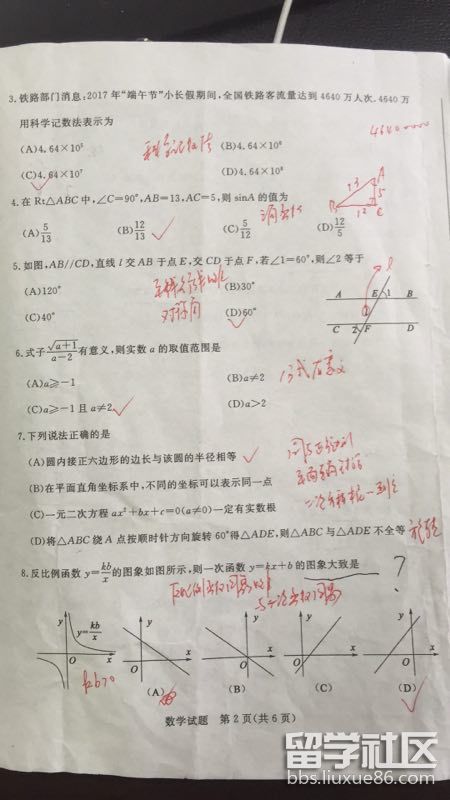 3.铁路部门消息:2017年“端午节”小长假期间,全国铁路客流量达到4640万人次.4640万
用科学记数法表示为
4640000
(A)4.64×10⁵ 科学记数法 (B)4.64×10⁶
(C)4.64×10⁷ (D)4.64×10⁸
4.在Rt△ABC中,∠C=90°,AB=13,AC=5,则sinA的值为
(A)5/13 (B)12/13 (C)5/12 (D)12/5
A 13 5 B 12 C
5.如图,AB//CD,直线l交AB于点E,交CD于点F,若∠1=60°,则∠2等于
(A)120° (B)30°
(C)40° (D)60°
l
A E 1 B
C 2 F D
6.式子√(a+1)/(a-2)有意义,则实数a的取值范围是
(A)a≥-1 (B)a≠2
(C)a≥-1且a≠2 (D)a>2
7.下列说法正确的是
(A)圆内接正六边形的边长与该圆的半径相等
(B)在平面直角坐标系中,不同的坐标可以表示同一点
(C)一元二次方程ax²+bx+c=0(a≠0)一定有实数根
(D)将△ABC绕A点按顺时针方向旋转60°得△ADE,则△ABC与△ADE不全等 旋转
8.反比例函数y=kb/x的图象如图所示,则一次函数y=kx+b的图象大致是 ?
y y=kb/x O x
y O x
y O x
y O x
y O x
kb>0
(A) (B) (C) (D)
数学试题 第2页(共6页)
留学社区
bbs.liuxue86.com